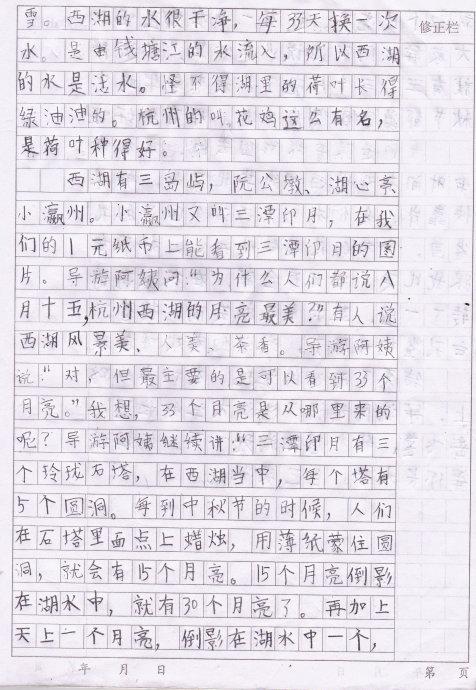 雪。西湖的水很干净，每33天换一次
修正栏
水。是由钱塘江的水流入，所以西湖
的水是活水。怪不得湖里的荷叶长得
绿油油的。杭州的叫花鸡这么有名，
是荷叶种得好。
西湖有三岛屿，阮公墩、湖心亭
小瀛州。小瀛州又叫三潭印月，在我
们的1元纸币上能看到三潭印月的图
片。导游阿姨问："为什么人们都说八
月十五，杭州西湖的月亮最美？"有人说
西湖风景美、人美、茶香。导游阿姨
说："对，但最主要的是可以看到33个
月亮。"我想，33个月亮是从哪里来的
呢？导游阿姨继续讲："三潭印月有三
个玲珑石塔，在西湖当中，每个塔有
5个圆洞。每到中秋节的时候，人们
在石塔里面点上蜡烛，用薄纸蒙住圆
洞，就会有15个月亮。15个月亮倒影
在湖水中，就有30个月亮了。再加上
天上一个月亮，倒影在湖水中一个，
年 月 日 第 页